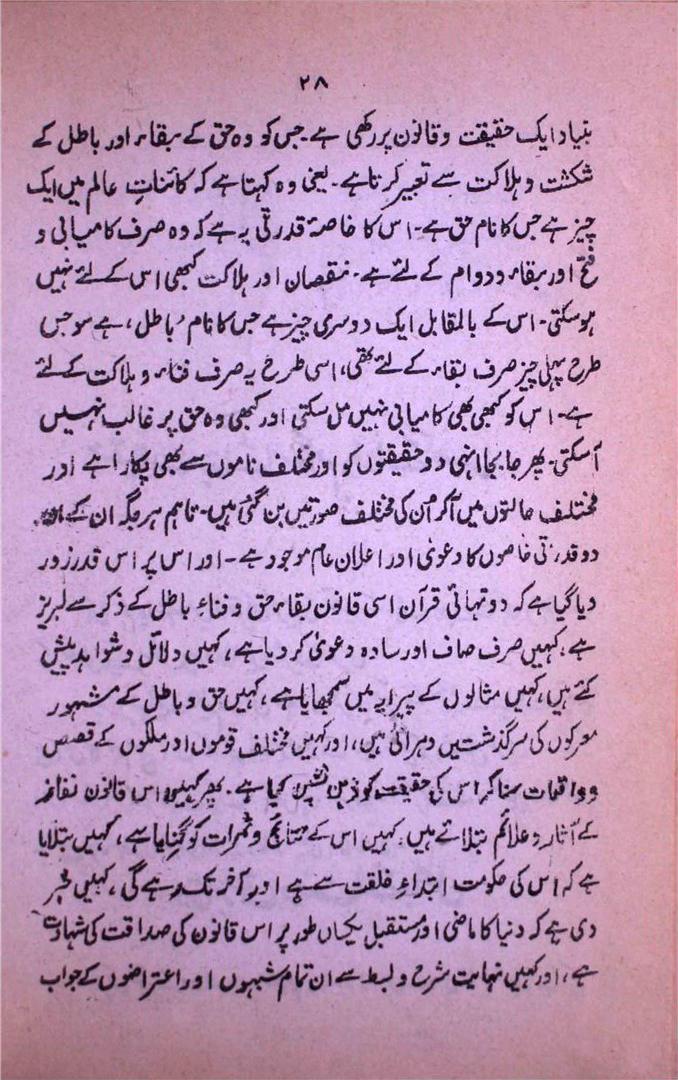 ۲۸
بنیاد ایک حقیقت و قانون پر رکھی ہے۔ جس کو وہ حق کے بقاء اور باطل کے
شکست و ہلاکت سے تعبیر کرتا ہے۔ یعنی وہ کہتا ہے کہ کائنات عالم میں ایک
چیز ہے جس کا نام حق ہے۔ اس کا خاصۂ قدرتی یہ ہے کہ وہ صرف کامیابی و
فتح اور بقاء و دوام کے لئے ہے۔ نقصان اور ہلاکت کبھی اس کے لئے نہیں
ہو سکتی۔ اس کے بالمقابل ایک دوسری چیز ہے جس کا نام ’باطل‘ ہے سو جس
طرح پہلی چیز صرف بقاء کے لئے تھی، اسی طرح یہ صرف فناء و ہلاکت کے لئے
ہے۔ اس کو کبھی بھی کامیابی نہیں مل سکتی اور کبھی وہ حق پر غالب نہیں
آ سکتی۔ پھر جا بجا انہی دو حقیقتوں کو اور مختلف ناموں سے بھی پکارا ہے اور
مختلف حالتوں میں آ کر اُن کی مختلف صورتیں بن گئی ہیں۔ تاہم ہر جگہ ان کے
دو قدرتی خاصوں کا دعویٰ اور اعلان عام موجود ہے۔ اور اس پر اس قدر زور
دیا گیا ہے کہ دو تہائی قرآن اسی قانون بقاء حق و فناء باطل کے ذکر سے لبریز
ہے، کہیں صرف صاف اور سادہ دعویٰ کر دیا ہے، کہیں دلائل و شواہد پیش
کئے ہیں، کہیں مثالوں کے پیرایہ میں سمجھایا ہے، کہیں حق و باطل کے مشہور
معرکوں کی سرگذشتیں دہرائی ہیں، اور کہیں مختلف قوموں اور ملکوں کے قصص
و واقعات سنا کر اس کی حقیقت کو ذہن نشین کیا ہے۔ پھر کہیں اس قانون نفاذ
کے آثار و علائم بتلائے ہیں۔ کہیں اس کے نتائج و ثمرات کو گنایا ہے، کہیں بتلایا
ہے کہ اس کی حکومت ابتداءِ خلقت سے ہے اور آخر تک رہے گی، کہیں خبر
دی ہے کہ دنیا کا ماضی اور مستقبل یکساں طور پر اس قانون کی صداقت کی شہادت
ہے، اور کہیں نہایت شرح و بسط سے ان تمام شبہوں اور اعتراضوں کے جواب